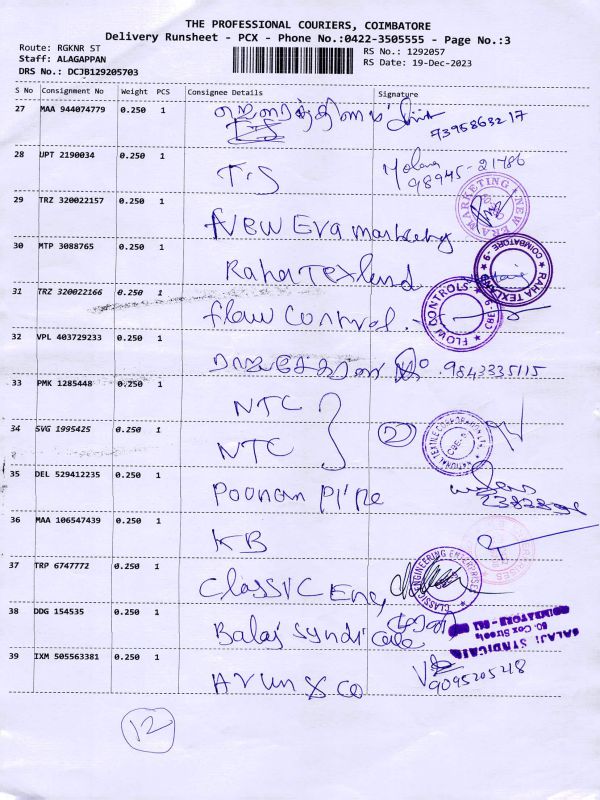 THE PROFESSIONAL COURIERS, COIMBATORE
Delivery Runsheet - PCX - Phone No.:0422-3505555 - Page No.:3
Route: RGKNR ST
RS No.: 1292057
Staff: ALAGAPPAN
RS Date: 19-Dec-2023
DRS No.: DCJB129205703
S No Consignment No Weight PCS Consignee Details Signature
27 MAA 944074779 0.250 1
7395863217
28 UPT 2190034 0.250 1 T.S
98945-21786
29 TRZ 320022157 0.250 1 New Era marketing
MARKETING NEW ERA
30 MTP 3088765 0.250 1 Raha Texlend
COIMBATORE-9 RAHA TEXLAND
31 TRZ 320022166 0.250 1 flow control.
FLOW CONTROLS
32 VPL 403729233 0.250 1 ராஜசேகரன் .9843335115
33 PMK 1285448 0.250 1 NTC
34 SVG 1995425 0.250 1 NTC
2
NATIONAL TEXTILE CORPORATION LTD.
35 DEL 529412235 0.250 1 Poonam pipe
36 MAA 106547439 0.250 1 KB
37 TRP 6747772 0.250 1 Classic Eng
CLASSIC ENGINEERING ENTERPRISES
38 DDG 154535 0.250 1 Balaj Syndicate
BALAJI SYNDICATE
80, Cox Street,
COIMBATORE - 641
39 IXM 505563381 0.250 1 Arun & co
9095205218
12